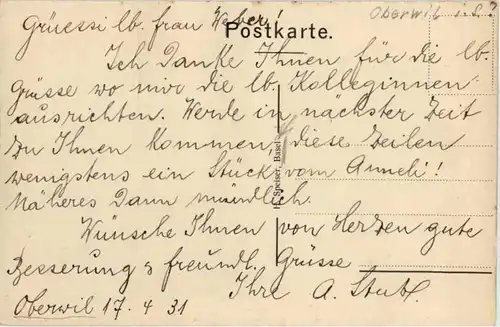 Grüessi lb. frau Weber!
Postkarte.
Oberwil i. S.?
Ich Danke Ihnen für die lb.
Grüsse wo mir die lb. Kolleginnen
ausrichten. Werde in nächster Zeit
zu Ihnen kommen, diese Zeilen
wenigstens ein Stück vom Anneli!
Näheres Dann mündlich.
Wünsche Ihnen von Herzen gute
Besserung & freundl. Grüsse
Ihre A.
Oberwil 17. 4 31
H. Speiser, Basel